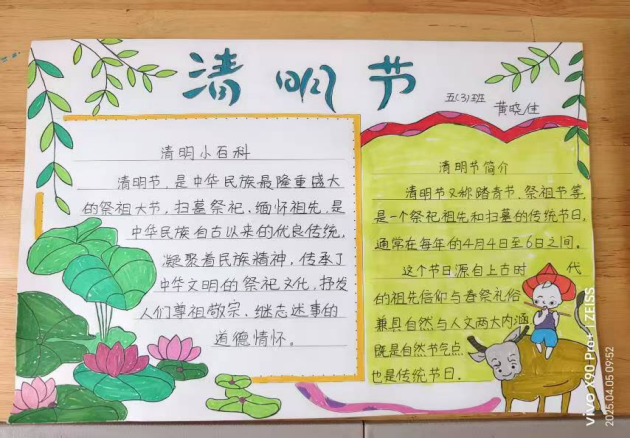 清明节
五(3)班 黄晓佳
清明小百科
清明节,是中华民族最隆重盛大
的祭祖大节,扫墓祭祀,缅怀祖先,是
中华民族自古以来的优良传统,
凝聚着民族精神,传承了
中华文明的祭祀文化,抒发
人们尊祖敬宗、继志述事的
道德情怀。
清明节简介
清明节又称踏青节、祭祖节等,
是一个祭祀祖先和扫墓的传统节日,
通常在每年的4月4日至6日之间。
这个节日源自上古时 代
的祖先信仰与春祭礼俗
兼具自然与人文两大内涵
既是自然节气点
也是传统节日.
vivo X90 Pro+ | ZEISS
2025.04.05 09:52